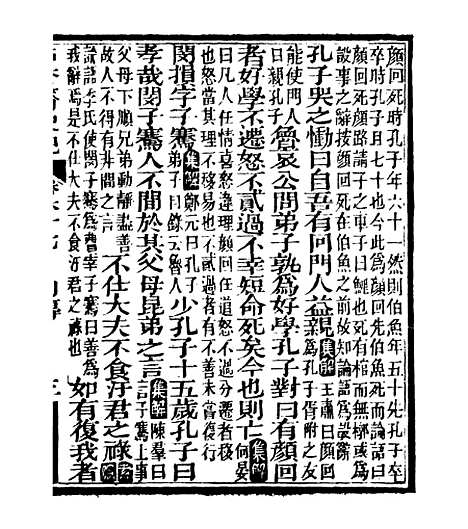 顏回死時孔子年六十一然則伯魚年五十先孔子卒
卒時孔子且七十也今此爲顏回先伯魚死而論語曰
顏回死顏路請子之車子曰鯉也死有棺而無槨或爲
設事之辭按顏回死在伯魚之前故知論語爲設辭
孔子哭之慟曰自吾有回門人益親集解王肅曰顏回爲孔子胥附之友
能使門人日親孔子魯哀公問弟子孰爲好學孔子對曰有顏回
者好學不遷怒不貳過不幸短命死矣今也則亡集解何晏
曰凡人任情喜怒違理顏回任道怒不過分遷者移
也怒當其理不移易也不貳過者有不善未嘗復行
閔損字子騫集解鄭元曰孔子弟子目錄云魯人少孔子十五歲孔子曰
孝哉閔子騫人不閒於其父母昆弟之言集解陳羣曰言子騫上事
父母下順兄弟動靜盡善故人不得有非閒之言不仕大夫不食汙君之祿索隱
論語季氏使閔子騫爲費宰子騫曰善爲我辭焉是不仕大夫不食汙君之祿也如有復我者